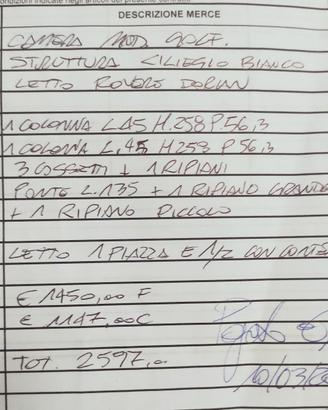 condizioni indicate negli articoli del presente
DESCRIZIONE MERCE
CAMERA MOD. GOLF.
STRUTTURA CILIEGIO BIANCO
LETTO ROVERE DORIAN
1 COLONNA L.45 H.258 P.56,3
1 COLONNA L.45 H.258 P.56,3
3 CASSETTI + 1 RIPIANI
PONTE L.135 + 1 RIPIANO GRANDE
+ 1 RIPIANO PICCOLO
LETTO 1 PIAZZA E 1/2 CON CONTE
€ 1450,00 F
€ 1147,00 C
TOT. 2597,00
10/03/